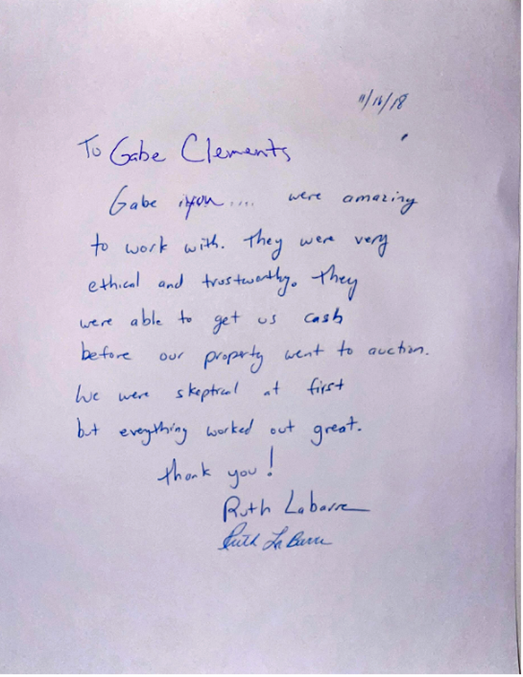 11/16/18
To Gabe Clements
Gabe you.... were amazing
to work with. They were very
ethical and trustworthy. They
were able to get us cash
before our property went to auction.
We were skeptical at first
but everything worked out great.
Thank you!
Ruth Labarre
Ruth La Barre